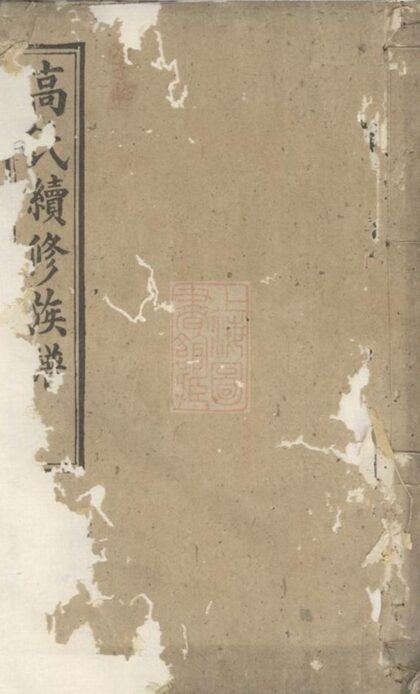 高氏續修族
上海圖
書館藏